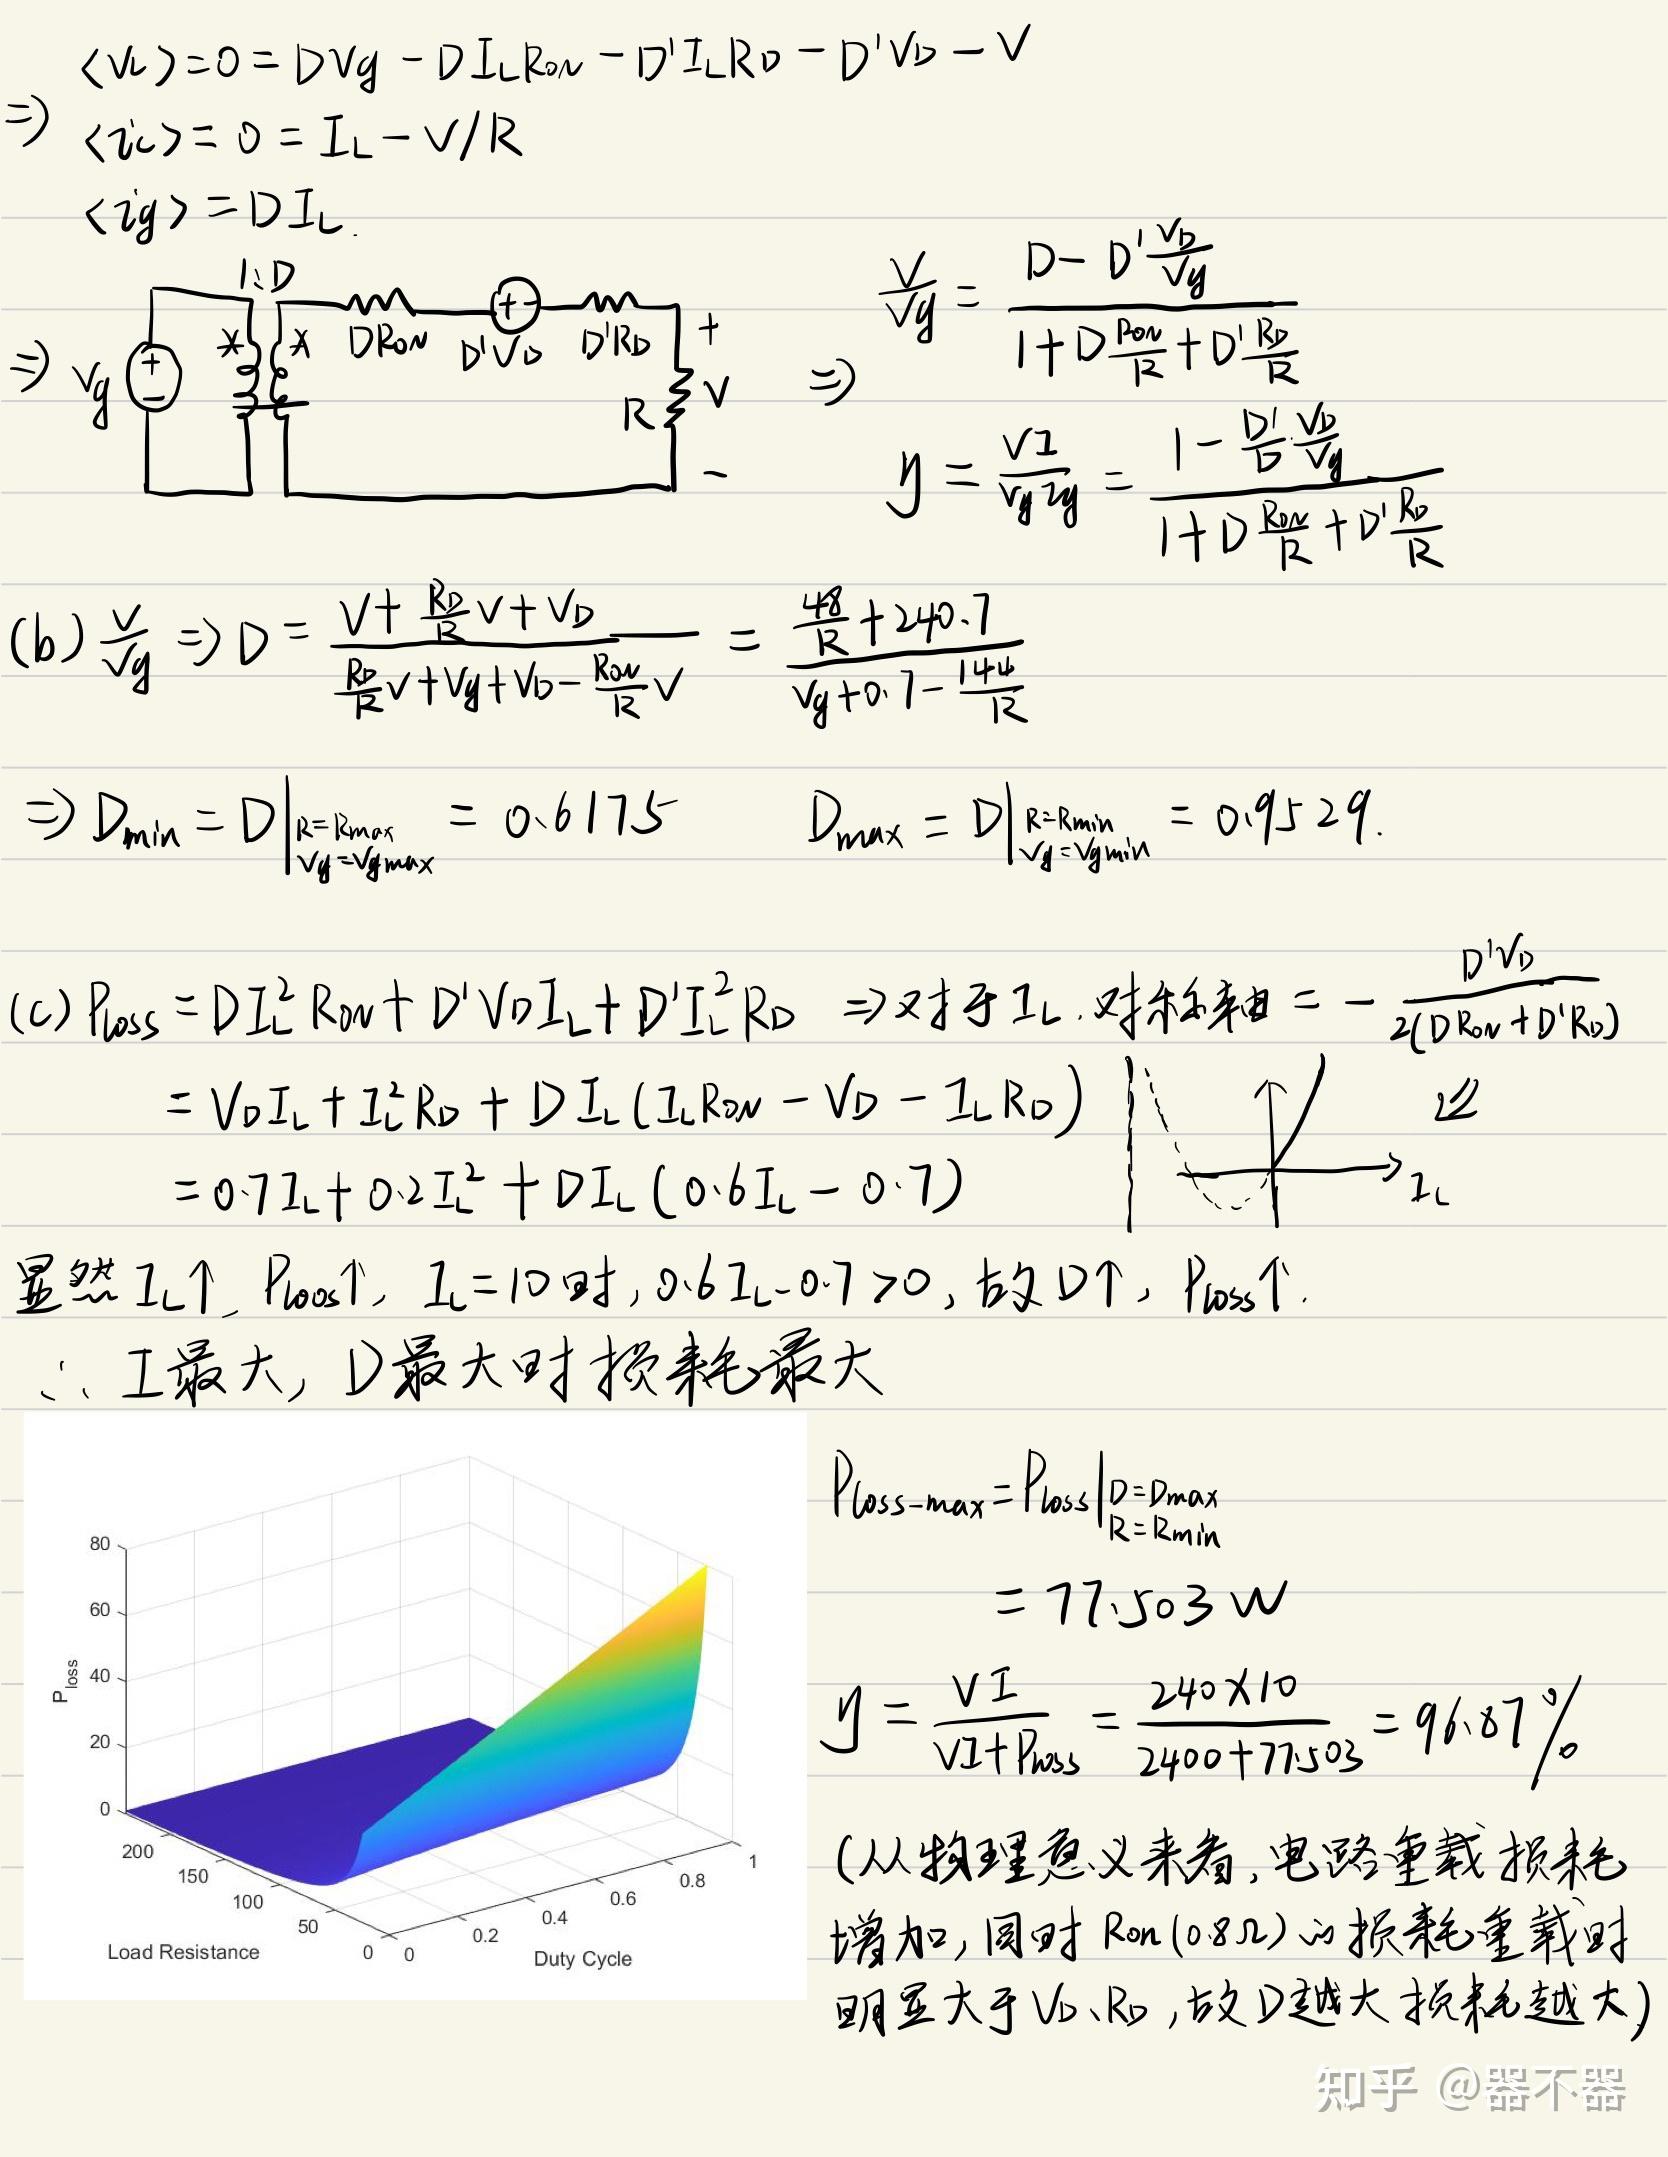 <vL> = 0 = DVg - DILRon - D'ILRD - D'VD - V
⇒ <ic> = 0 = IL - V/R
<ig> = DIL.
1:D
⇒ Vg + − * * DRon + − D'VD D'RD R + V −
⇒ V/Vg = (D - D' VD/Vg) / (1 + D Ron/R + D' RD/R)
η = VI/VgIg = (1 - D'/D · VD/Vg) / (1 + D Ron/R + D' RD/R)
(b) V/Vg ⇒ D = (V + RD/R V + VD) / (RD/R V + Vg + VD - Ron/R V) = (48/R + 240.7) / (Vg + 0.7 - 144/R)
⇒ Dmin = D | R=Rmax Vg=Vgmax = 0.6175 Dmax = D | R=Rmin Vg=Vgmin = 0.9529.
(c) Ploss = DIL² Ron + D'VDIL + D'IL² RD ⇒ 对于 IL. 对称轴 = - D'VD / 2(DRon + D'RD)
= VDIL + IL²RD + DIL(ILRon - VD - ILRD)
⇓
= 0.7IL + 0.2IL² + DIL(0.6IL - 0.7)
IL
显然 IL↑, Ploos↑, IL=10时, 0.6IL-0.7>0, 故D↑, Ploss↑.
∴ I最大, D最大时损耗最大
80
60
40
20
0
Ploss
200
150
100
50
0
Load Resistance
0
0.2
0.4
0.6
0.8
1
Duty Cycle
Ploss-max = Ploss | D=Dmax R=Rmin
= 77.503 W
η = VI / (VI + Ploss) = 240×10 / (2400 + 77.503) = 96.87%
(从物理意义来看, 电路重载损耗
增加, 同时 Ron(0.8Ω)的损耗重载时
明显大于 VD、RD, 故D越大损耗越大)
知乎 @器不器